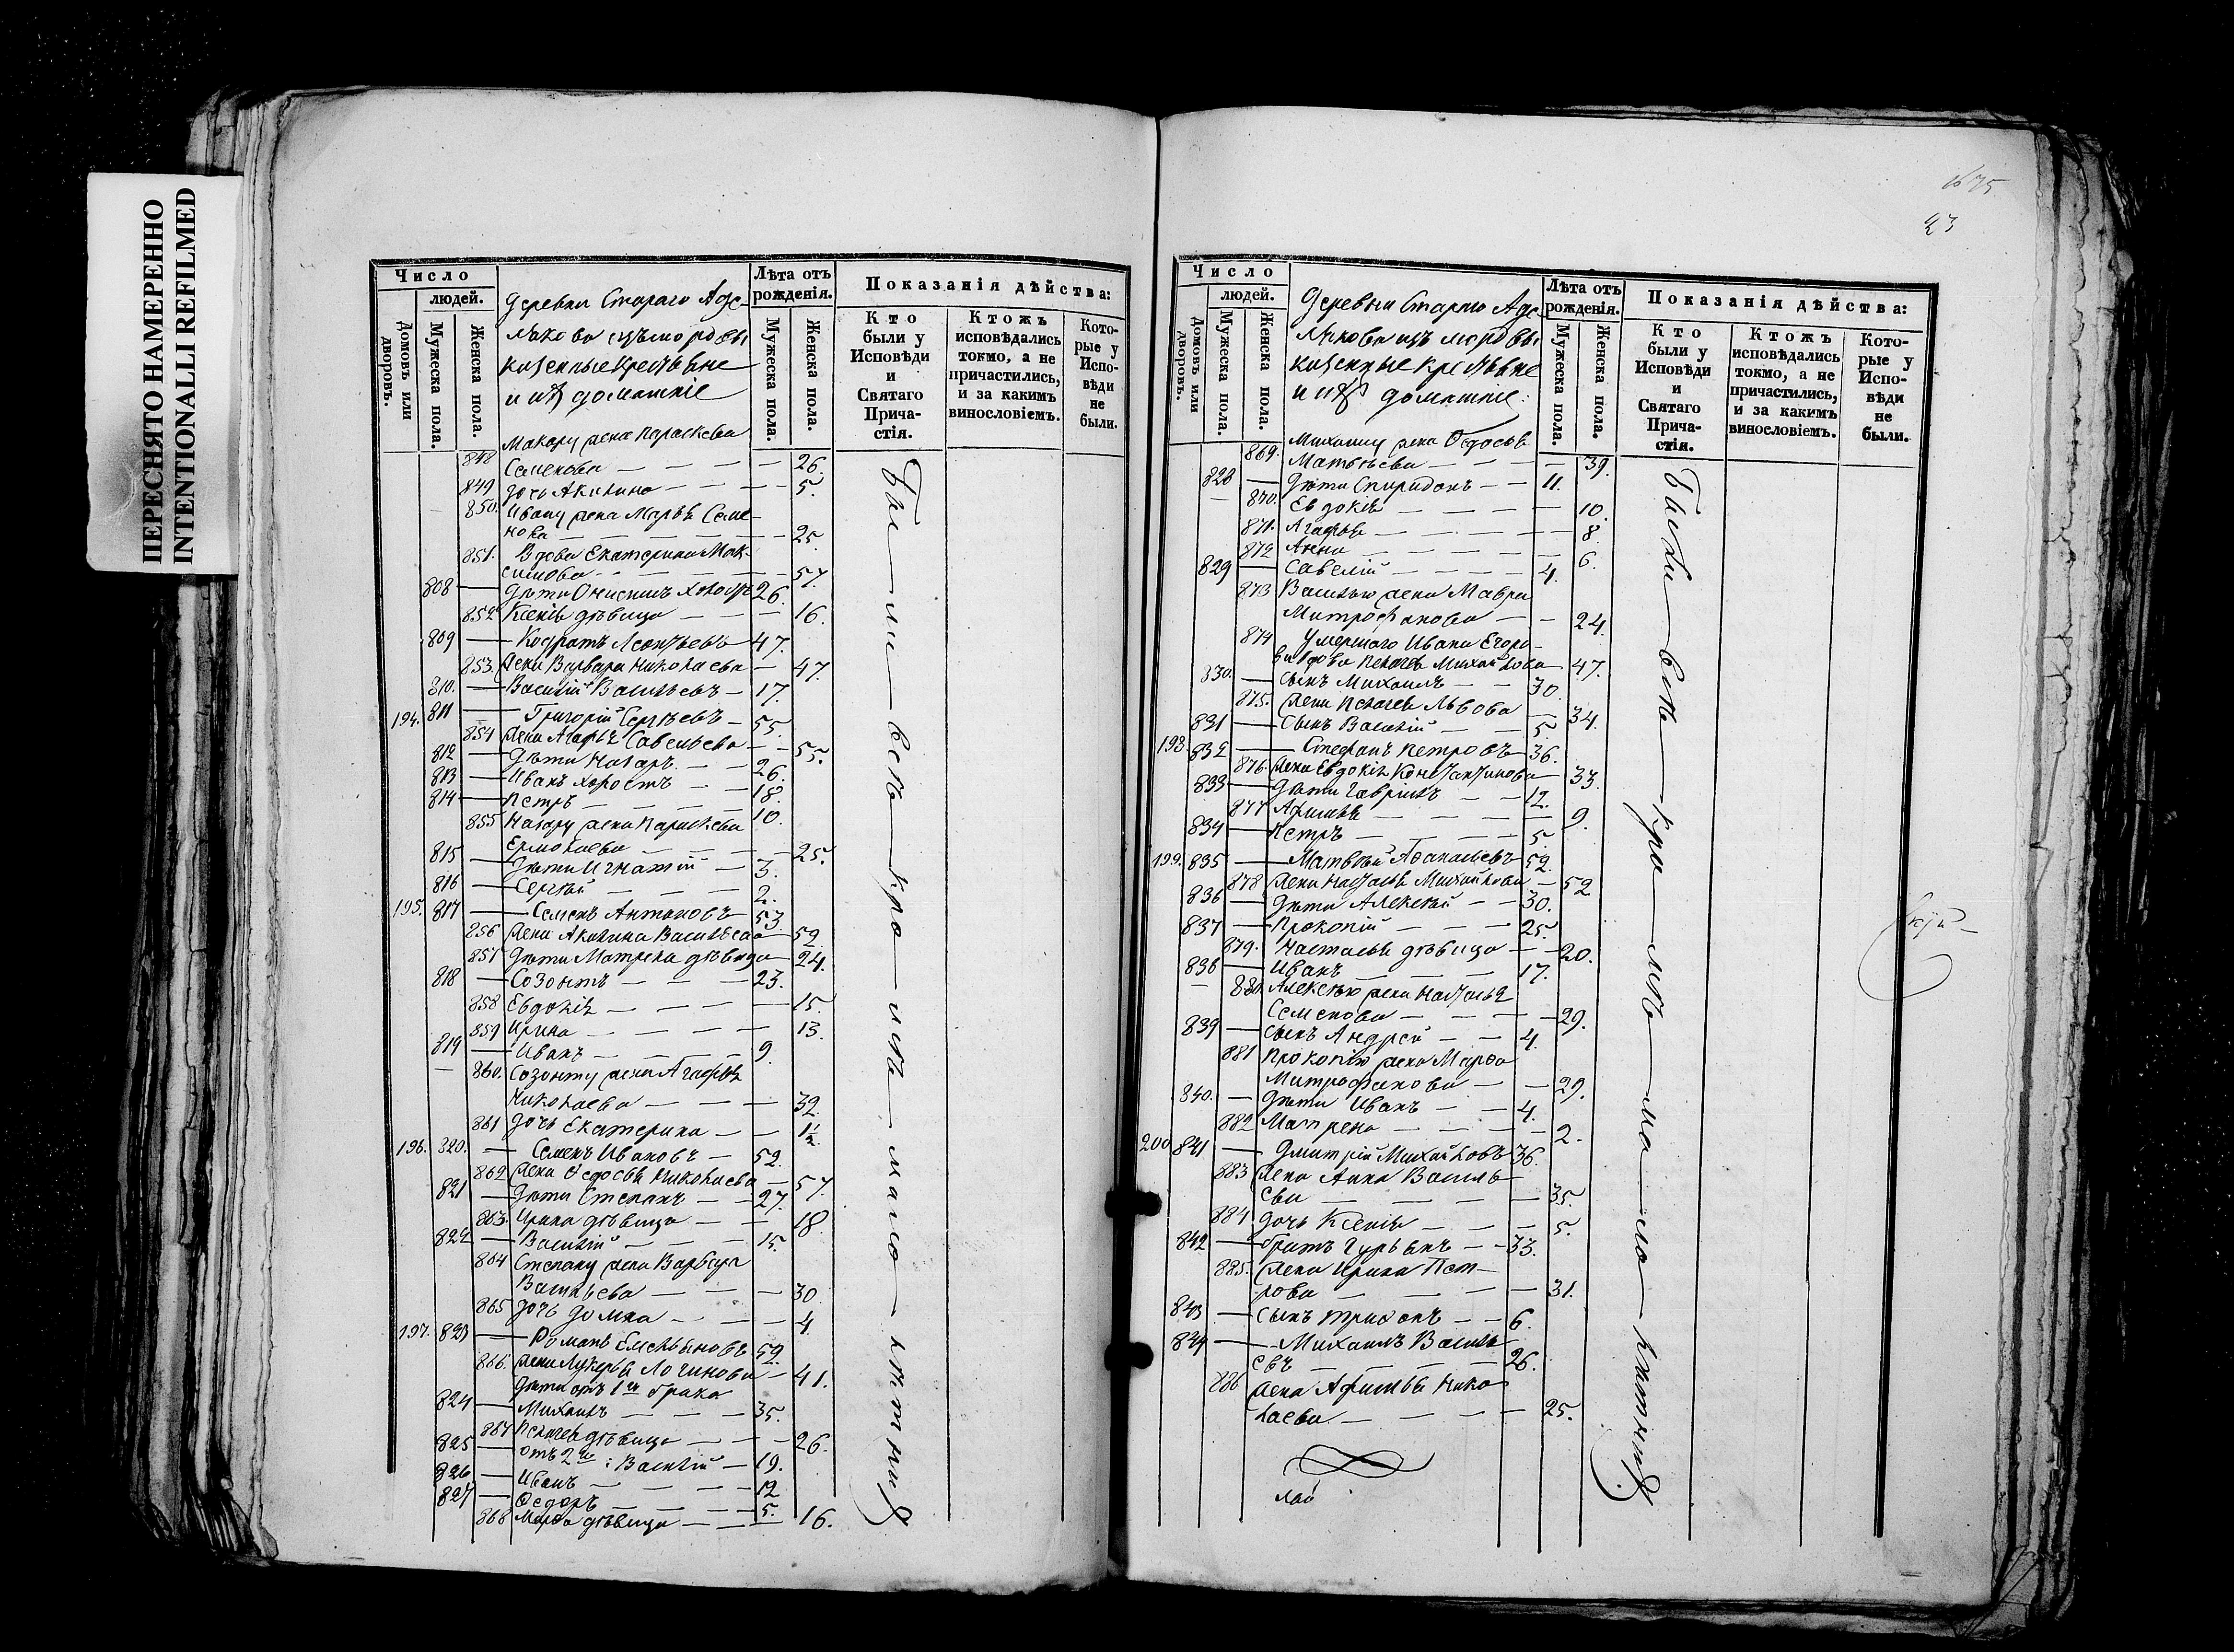 ПЕРЕСНЯТО НАМЕРЕННО
INTENTIONALLI REFILMED
Число
людей.
Домовъ или дворовъ.
Мужеска пола.
Женска пола.
Деревни Стараго
казенные
и ихъ домашніе
Лѣта отъ рожденія.
Мужеска пола.
Женска пола.
Показанія дѣйства:
Кто были у Исповѣди и Святаго Прича-стія.
Ктожъ исповѣдались токмо, а не причастились, и за какимъ винословіемъ.
Кото-рые у Испо-вѣди не были.
Макару жена Параскева
848 Семенова — — — — 26.
849 дочь Акилина — — — — 5.
850. Ивану жена Марья Семе-
нова — — — — 25
851. Вдова Екатерина Мак-
симова — — — — 57.
808 — Дѣти Онисимъ холостъ 26.
852 Ксенія дѣвица — — — 16.
809 — Кодратъ Леонтьевъ 47.
853. Жена Варвара Николаева — 47.
810. — Василій Васильевъ — 17.
194. 811 — Григорій Сергѣевъ — 55.
854 Жена Агафья Савельева — — 55.
812 — Дѣти Назаръ — — 26.
813 — Иванъ холостъ — — 18.
814 — Петръ — — — — 10.
855 Назару жена Параскева
Ермолаева — — — — 25.
815 — Дѣти Игнатій — 3.
816 — Сергѣй — — — 2.
195. 817 — Семенъ Антоновъ 53.
856 Жена Акилина Васильева — 52.
857 Дѣти Матрена дѣвица — 24.
818 — Созонтъ — — — 23.
858 Евдокія — — — — 15.
859 Ирина — — — — 13.
819 — Иванъ — — — — 9.
860. Созонту жена Агафья
Николаева — — — — 32.
861 дочь Екатерина — — 1½.
196. 820. — Семенъ Ивановъ — 52.
862 Жена Ѳедосья Николаева — 57.
821 — Дѣти Степанъ — — 27.
863. Ирина дѣвица — — 18.
822 — Василій — — — 15.
864 Степану жена Варвара
Васильева — — — — 30
865 дочь Домна — — — — 4.
197. 823 — Романъ Емельяновъ 52.
866. Жена Лукерья Логинова — 41.
Дѣти отъ 1го брака
824 — Михаилъ — — — 35.
867 Пелагея дѣвица — — — 26.
825 — отъ 2го: Василій — 19.
826 — Иванъ — — — — 12
827 — Ѳедоръ — — — — 5.
868 Марѳа дѣвица — — — — 16.
Бы — ли — всѣ — кро — мѣ — мало — лѣтнихъ
1675
23
Число
людей.
Домовъ или дворовъ.
Мужеска пола.
Женска пола.
Деревни Стараго
казенные
и ихъ домашніе:
Лѣта отъ рожденія.
Мужеска пола.
Женска пола.
Показанія дѣйства:
Кто были у Исповѣди и Святаго Прича-стія.
Ктожъ исповѣдались токмо, а не причастились, и за какимъ винословіемъ.
Кото-рые у Испо-вѣди не были.
Михаилу жена Ѳедосья
869. Матвѣева — — — — 39.
828 — Дѣти Спиридонъ — — 11.
870. Евдокія — — — — 10.
871. Агафья — — — — 8.
872 Анна — — — — 6.
829 — Савелій — — — — 4.
873 Василью жена Мавра
Митрофанова — — 24.
874 Умершаго Ивана Егоро-
ва вдова Пелагея Михайлова 47.
830. — Сынъ Михаилъ — — 30.
875. Жена Пелагея Львова — 34.
831 — Сынъ Василій — — 5.
198. 832 — Стефанъ Петровъ — 36.
876. Жена Евдокія Константинова 33.
833 — Дѣти Гаврилъ — — 12.
877 Афимья — — — — 9.
834 — Петръ — — — — 5.
199. 835 — Матвѣй Аѳанасьевъ 52.
878 Жена Наталья Михайлова — 52
836 — Дѣти Алексѣй — — 30.
837 — Прокопій — — — 25.
879. Настасья дѣвица — — 20.
838 — Иванъ — — — — 17.
880. Алексѣю жена Наталья
Семенова — — — — 29.
839 — Сынъ Андрей — — 4.
881 Прокопію жена Марѳа
Митрофанова — — 29.
840. — Дѣти Иванъ — — 4.
882 Матрена — — — — 2.
200 841 — Дмитрій Михайловъ 36.
883 Жена Анна Василь-
ева — — — — 35.
884 дочь Ксенія — — — 5.
842 — братъ Гурьянъ — — 33.
885. Жена Ирина Пет-
рова — — — — 31.
843 — Сынъ Трифонъ — — 6.
844 — Михаилъ Василь-
евъ — — — — 26.
886 Жена Афимья Нико-
лаева — — — — 25.
Были — всѣ — кро — мѣ — ма — ло — лѣтнихъ